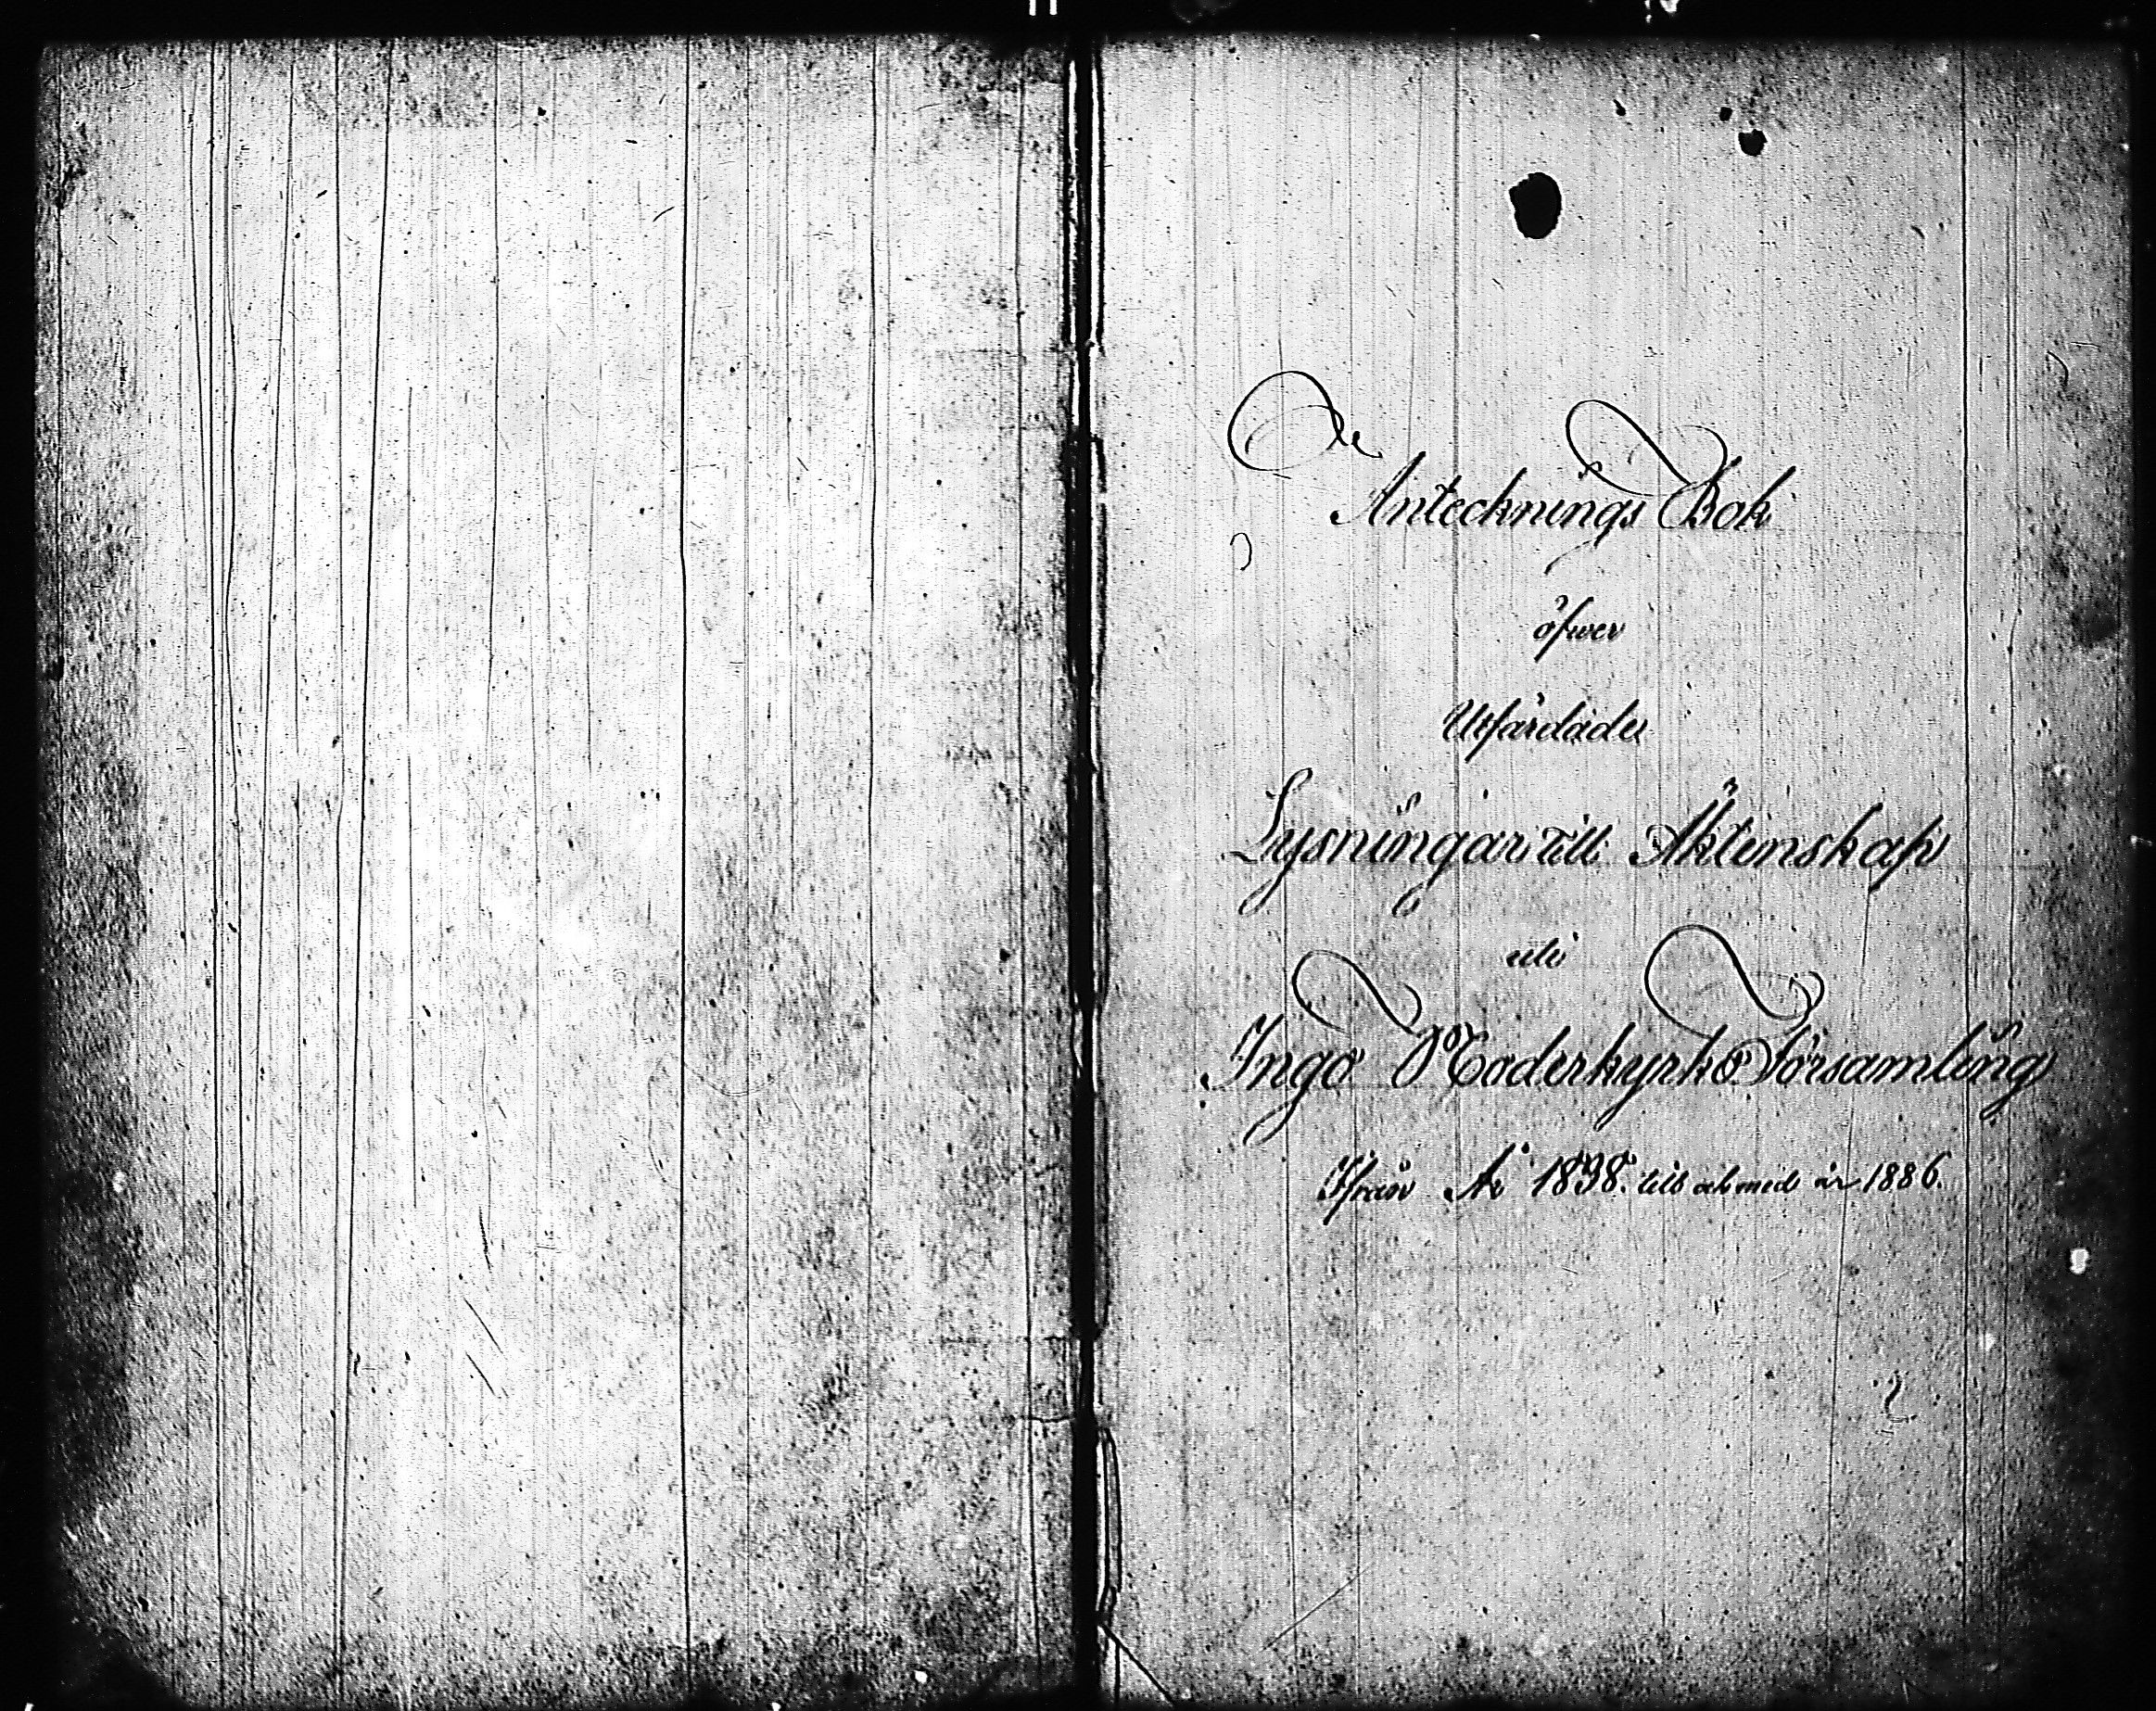 Antecknings Bok
öfwer
Utfärdade
Lysningar till Äktenskap
uti
Ingo Moderkyrko Församling
Ifrån År 1838. till och med år 1886.